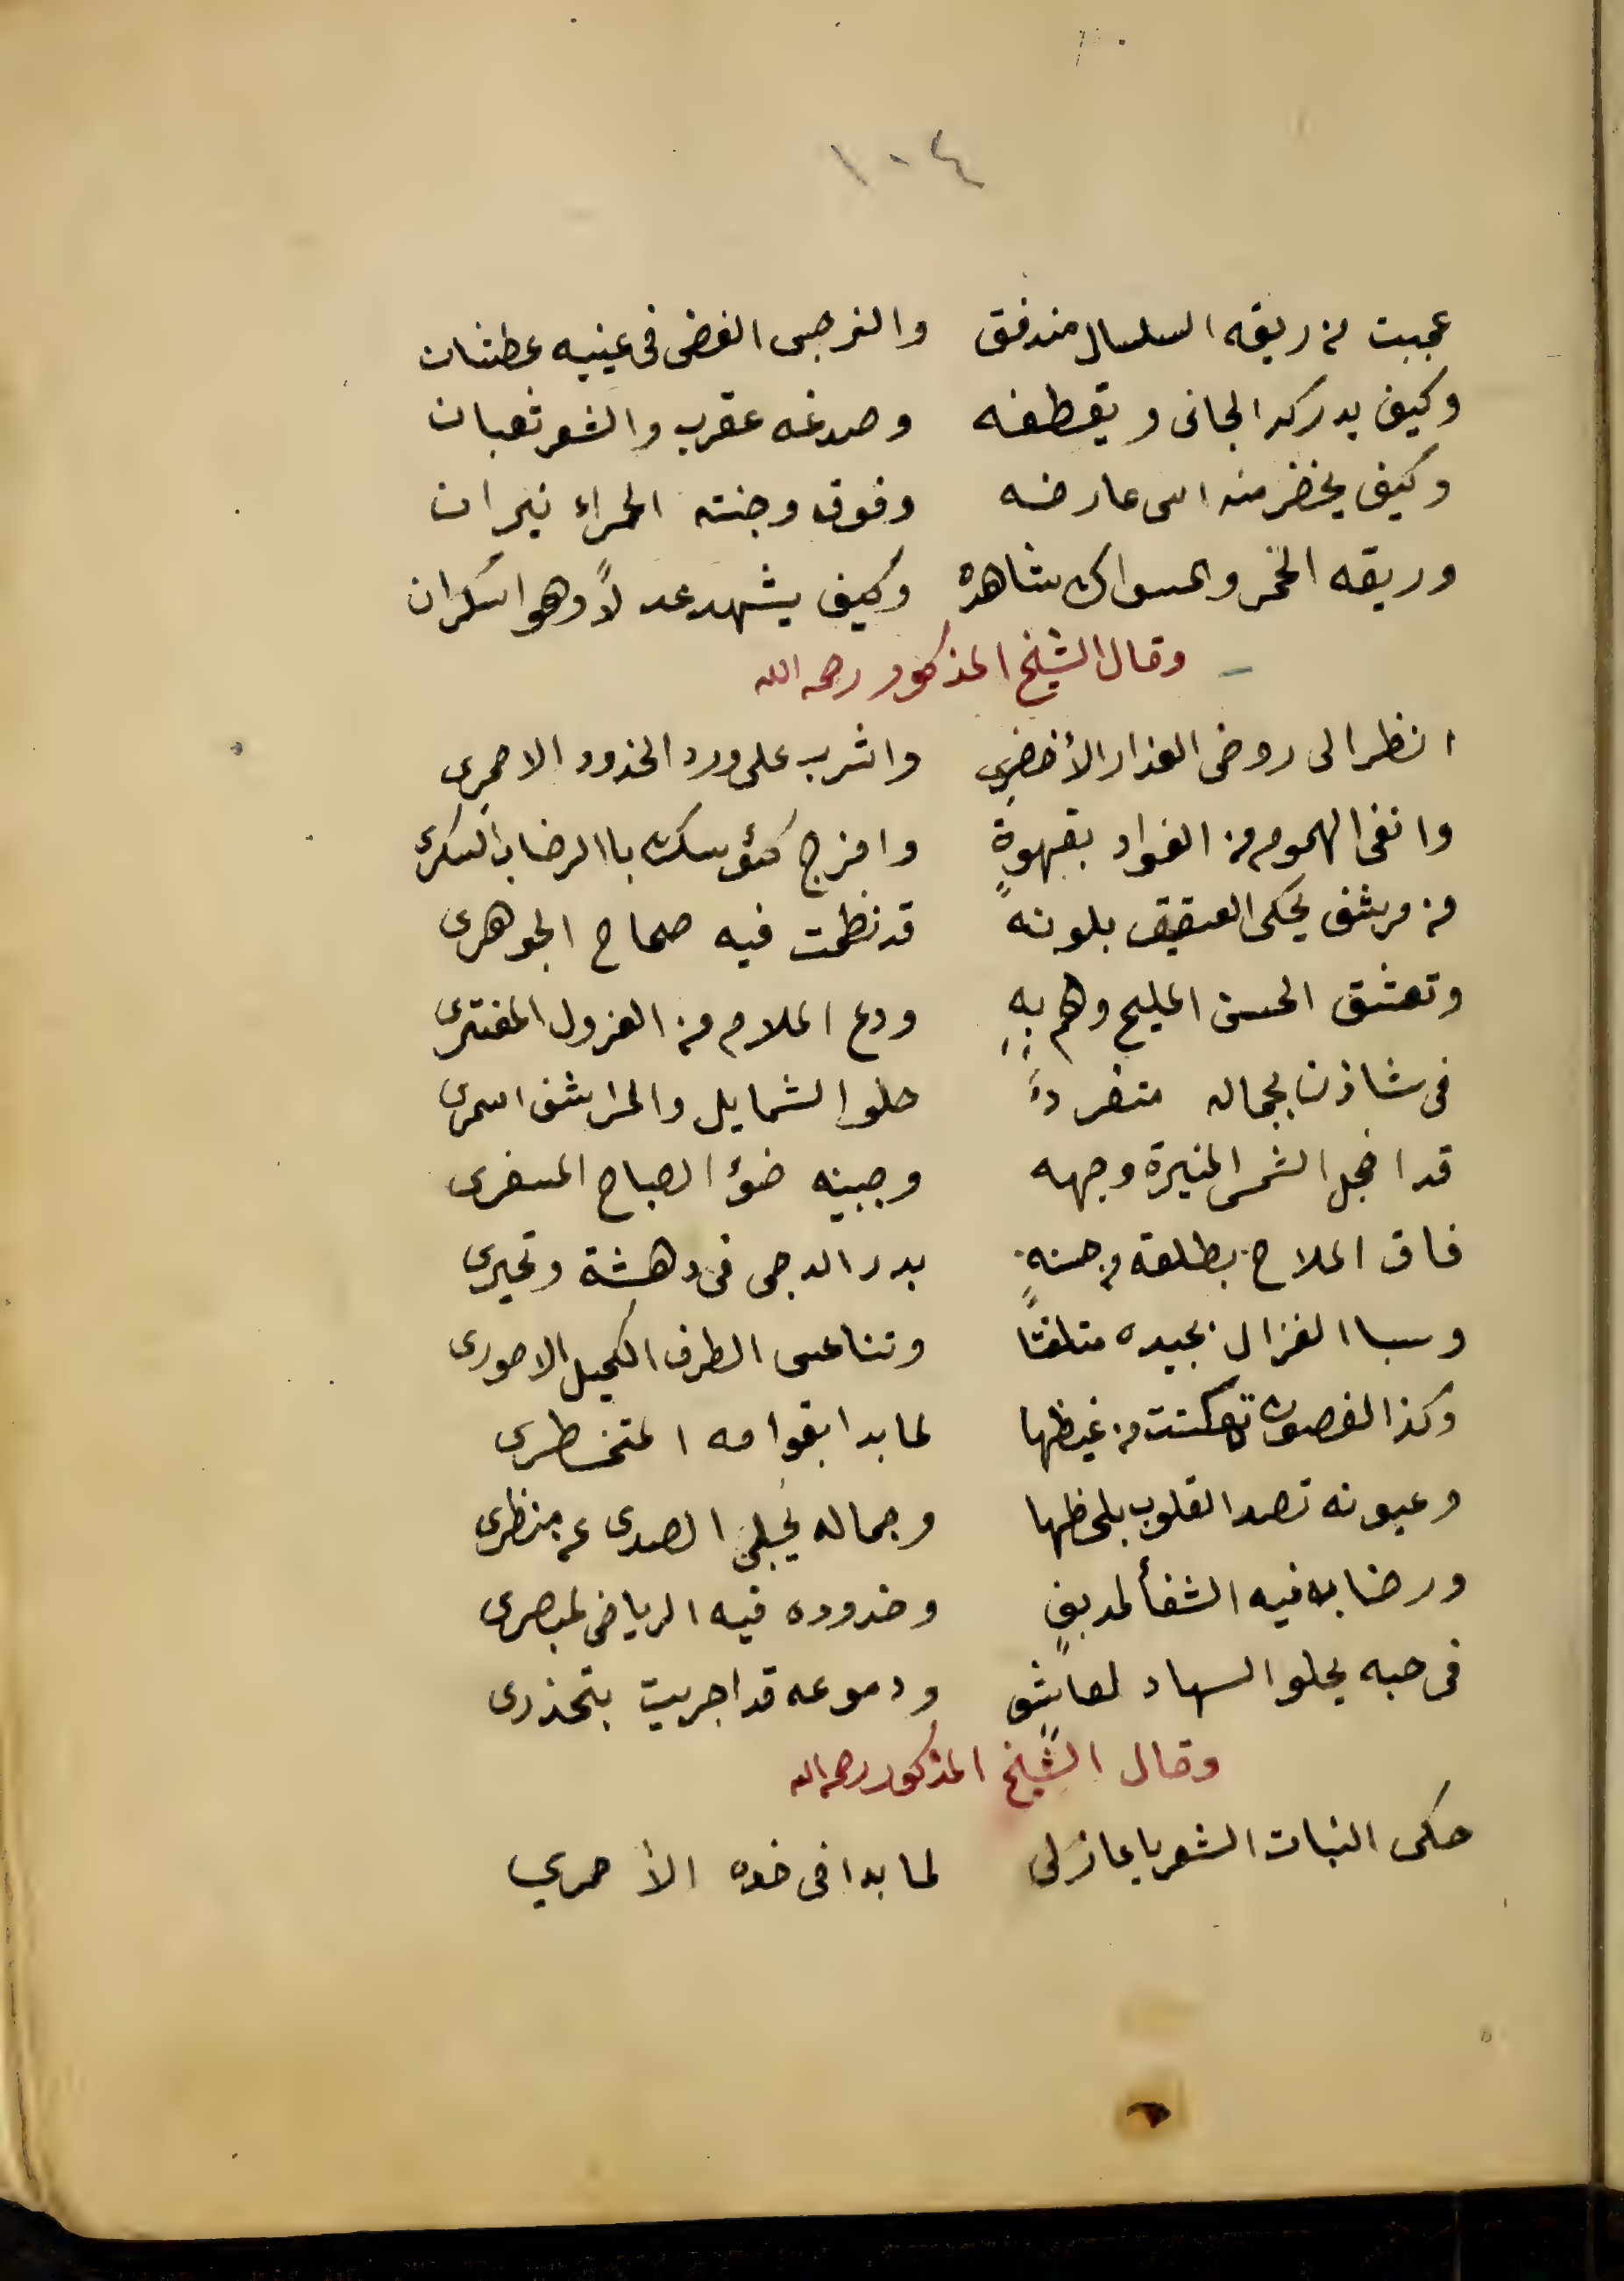 ١٠٤
عجبت من ريقه السلسال مندفق والنرجس الغض في عينيه عطشان
وكيف يدركه الجاني ويقطفه وصدغه عقرب والشعر ثعبان
وكيف يخضر منه اسى عارضه وفوق وجنته الحمراء نيران
وريقه الخمر والمسواك شاهده وكيف يشهد عدلاً وهو اسكران
وقال الشيخ المذكور رحمه الله
انظر الى روض العذار الأخضري واشرب على ورد الخدود الاحمرى
وانفى الهموم من الفواد بقهوةٍ وامزج كئوسك باالرضاب السكرى
من مرشف يحكى العقيق بلونه قد نظمت فيه صحاح الجوهرى
وتعشق الحسن المليح وهم بهِ ودع الملام من العزول المفترى
فى شاذن بجماله متفردٍ حلو الشمايل والمراشف اسمرى
قد اخجل الشمس المنيرة وجهه وجبينه ضؤ الصباح المسفرى
فاق الملاح بطلعته وحسنهِ بدر الدجى فى دهشة وتحيرى
وسبا الغزال بجيده متلفتًا وتناعس الطرف الكحيل الاحورى
وكذا الغصون من غيظها لما بدا بقوامه المتخطرى
وعيونه تصد القلوب بلحظها وجماله يجلى الصدى عن منظرى
ورضابه فيه الشفأ لمدنفٍ وخدوده فيه الرياض لمبصرى
فى حبه يحلو السهاد لعاشقٍ ودموعه قد اجريت بتحذرى
وقال الشيخ المذكور رحمه الله
حكى النبات الشعر يا عازلى لما بدا فى خده الأحمري